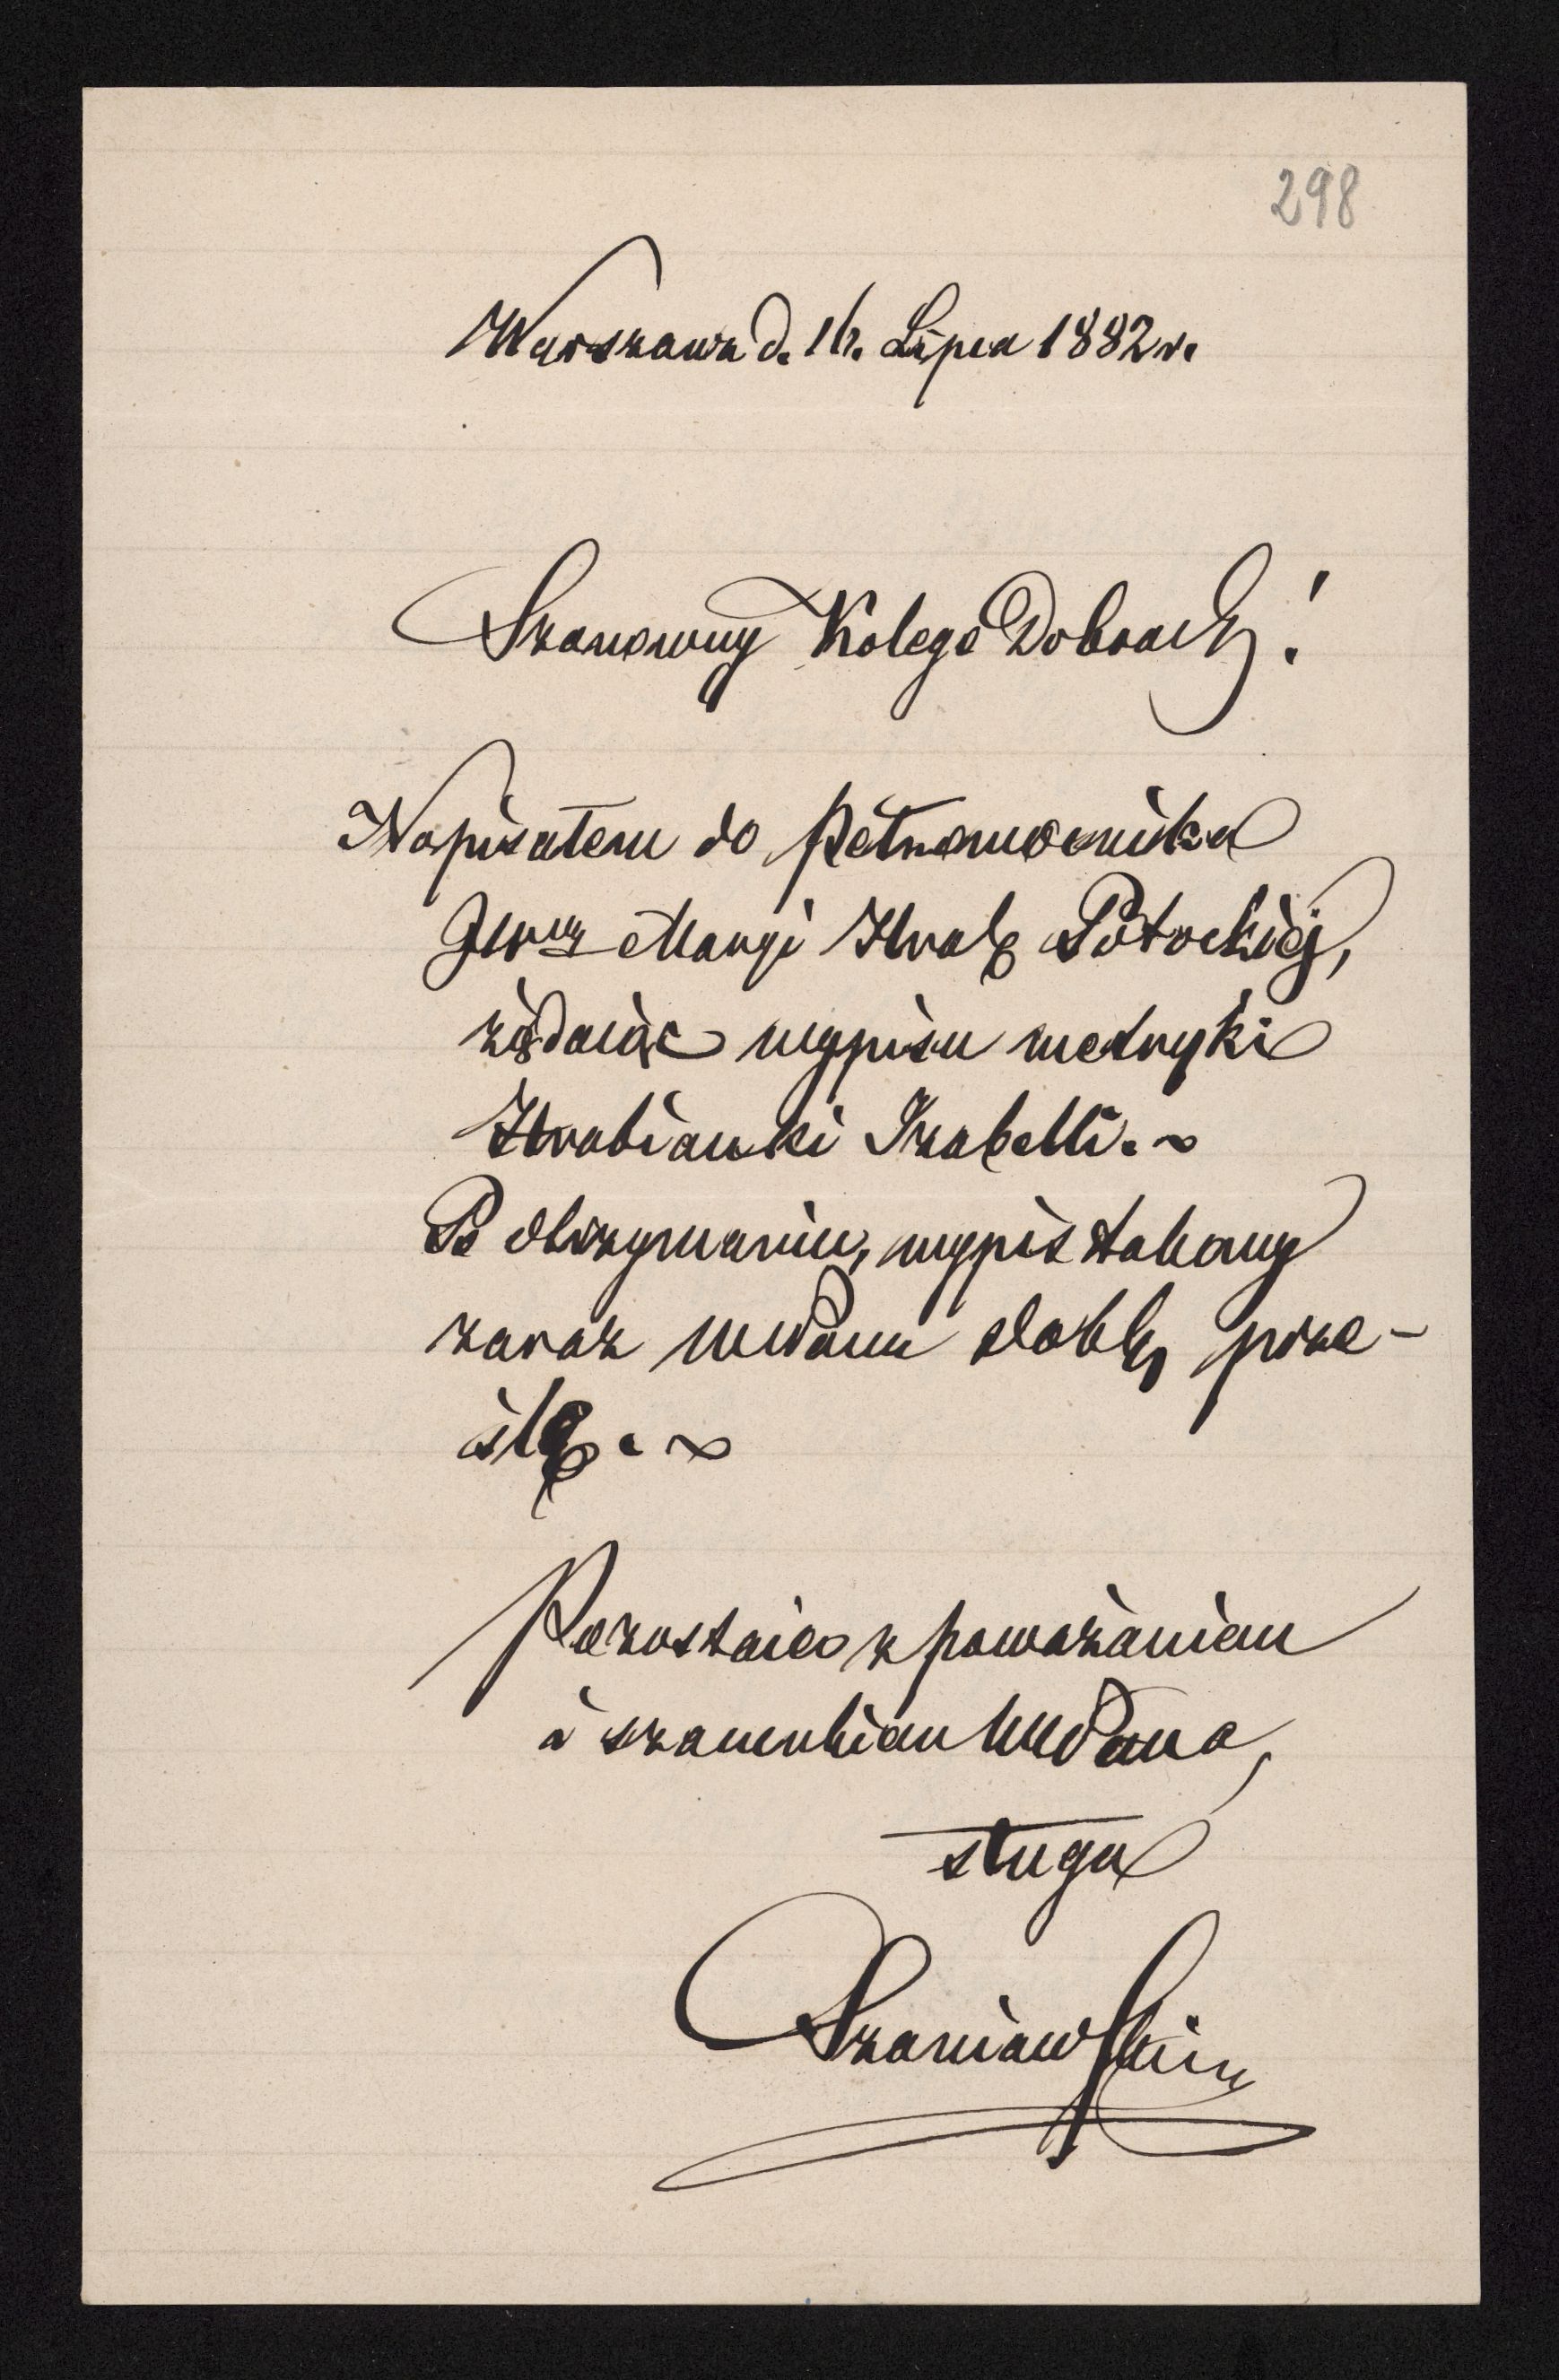 298
Warszawa d. 16. Lipca 1882 r.
Szanowny Kolego Dobrodz!
Napisałem do Pełnomocnika
JW Maryi Hrab Potockiéj,
żądaiąc wypisu metryki
Hrabianki Izabelli. ~
Po otrzymaniu, wypis takowy
zaraz WPanu Dobr prze-
ślę. ~
Pozostaię z poważaniem
i szacunkiem WWPana,
sługa
Szaniawski